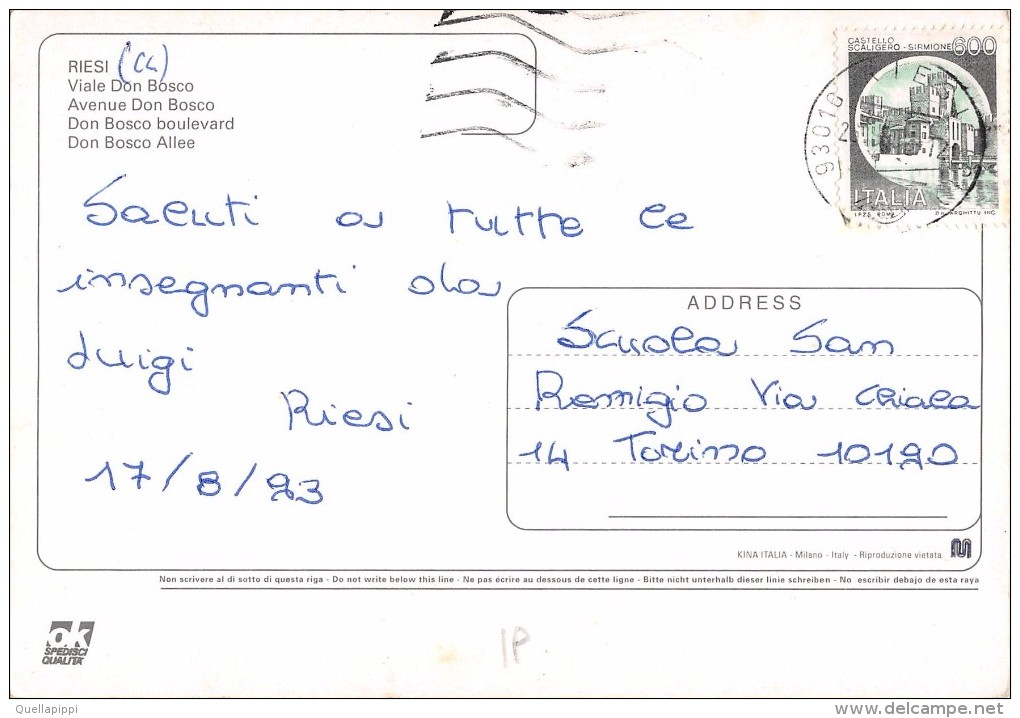 RIESI (CL)
Viale Don Bosco
Avenue Don Bosco
Don Bosco boulevard
Don Bosco Allee
CASTELLO
SCALIGERO - SIRMIONE 600
ITALIA
I.P.Z.S. ROMA
93016 RIESI
Saluti a tutte le
insegnanti da
Luigi
Riesi
17/8/93
ADDRESS
Scuola San
Remigio Via Chiala
14 Torino 10190
KINA ITALIA - Milano - Italy - Riproduzione vietata
Non scrivere al di sotto di questa riga - Do not write below this line - Ne pas écrire au dessous de cette ligne - Bitte nicht unterhalb dieser linie schreiben - No escribir debajo de esta raya
ok
SPEDISCI
QUALITA'
1P
Quellapippi
delcampe.net